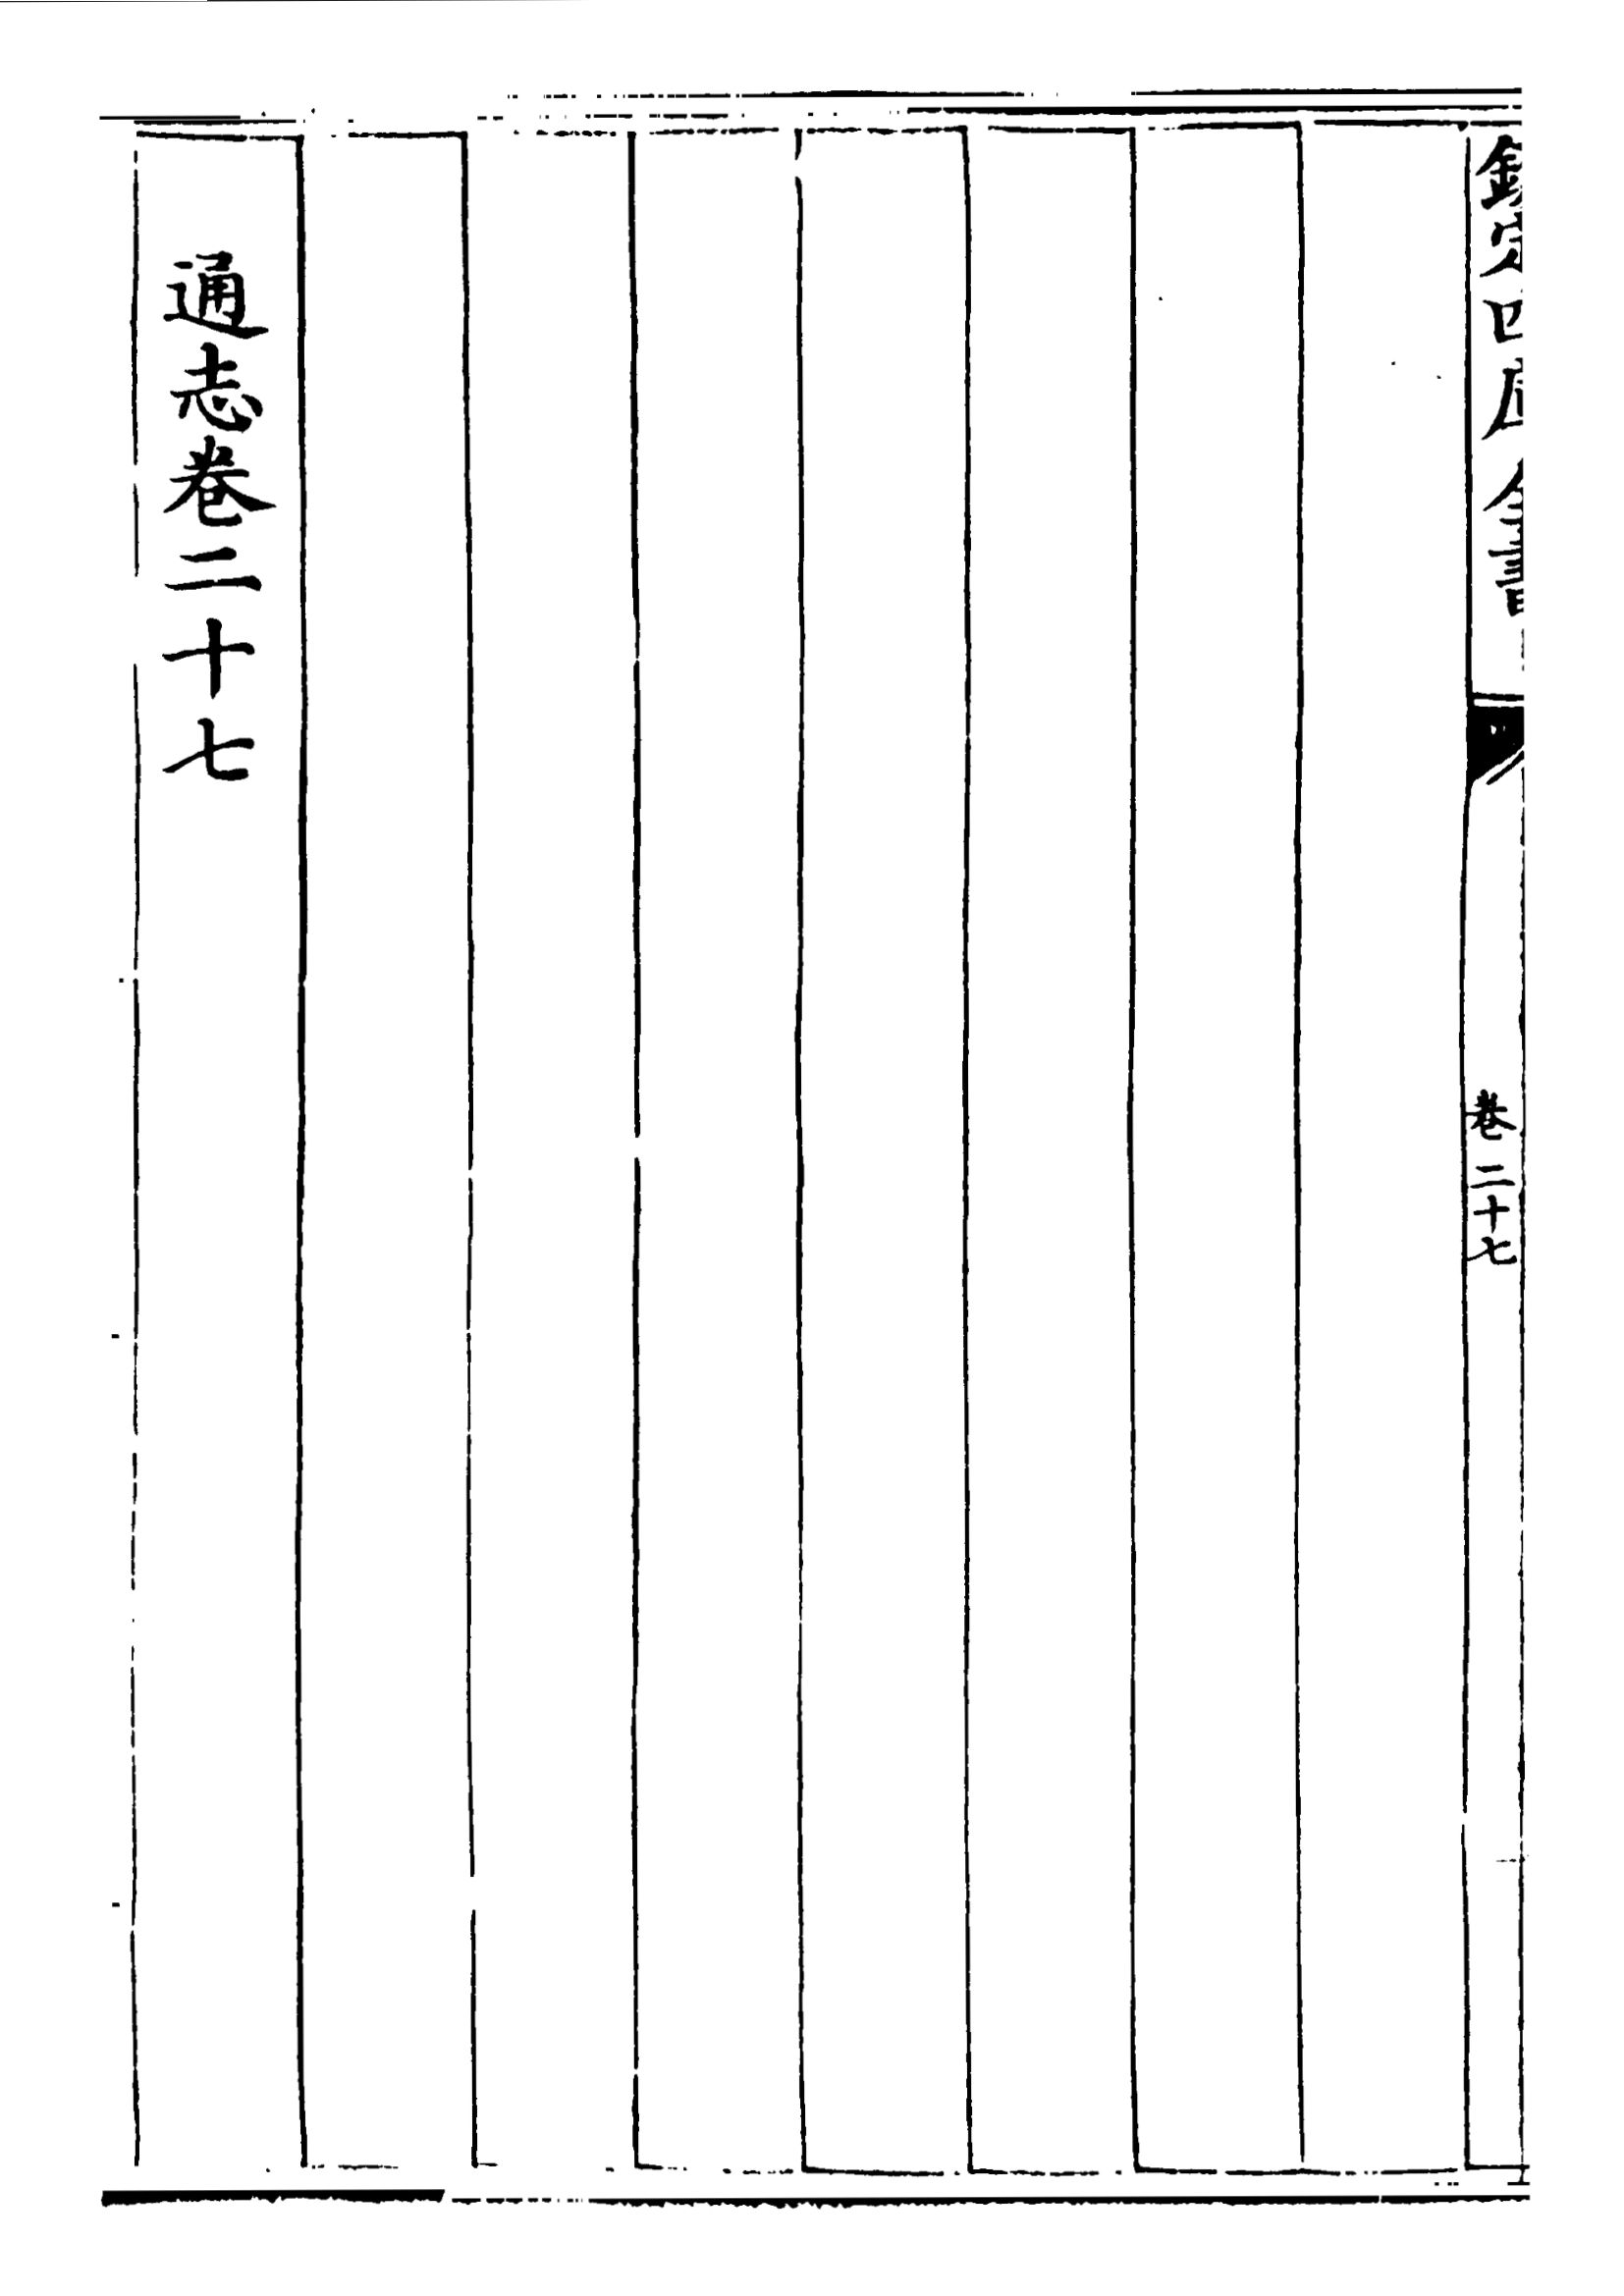 欽定四庫全書
卷二十七
通志卷二十七